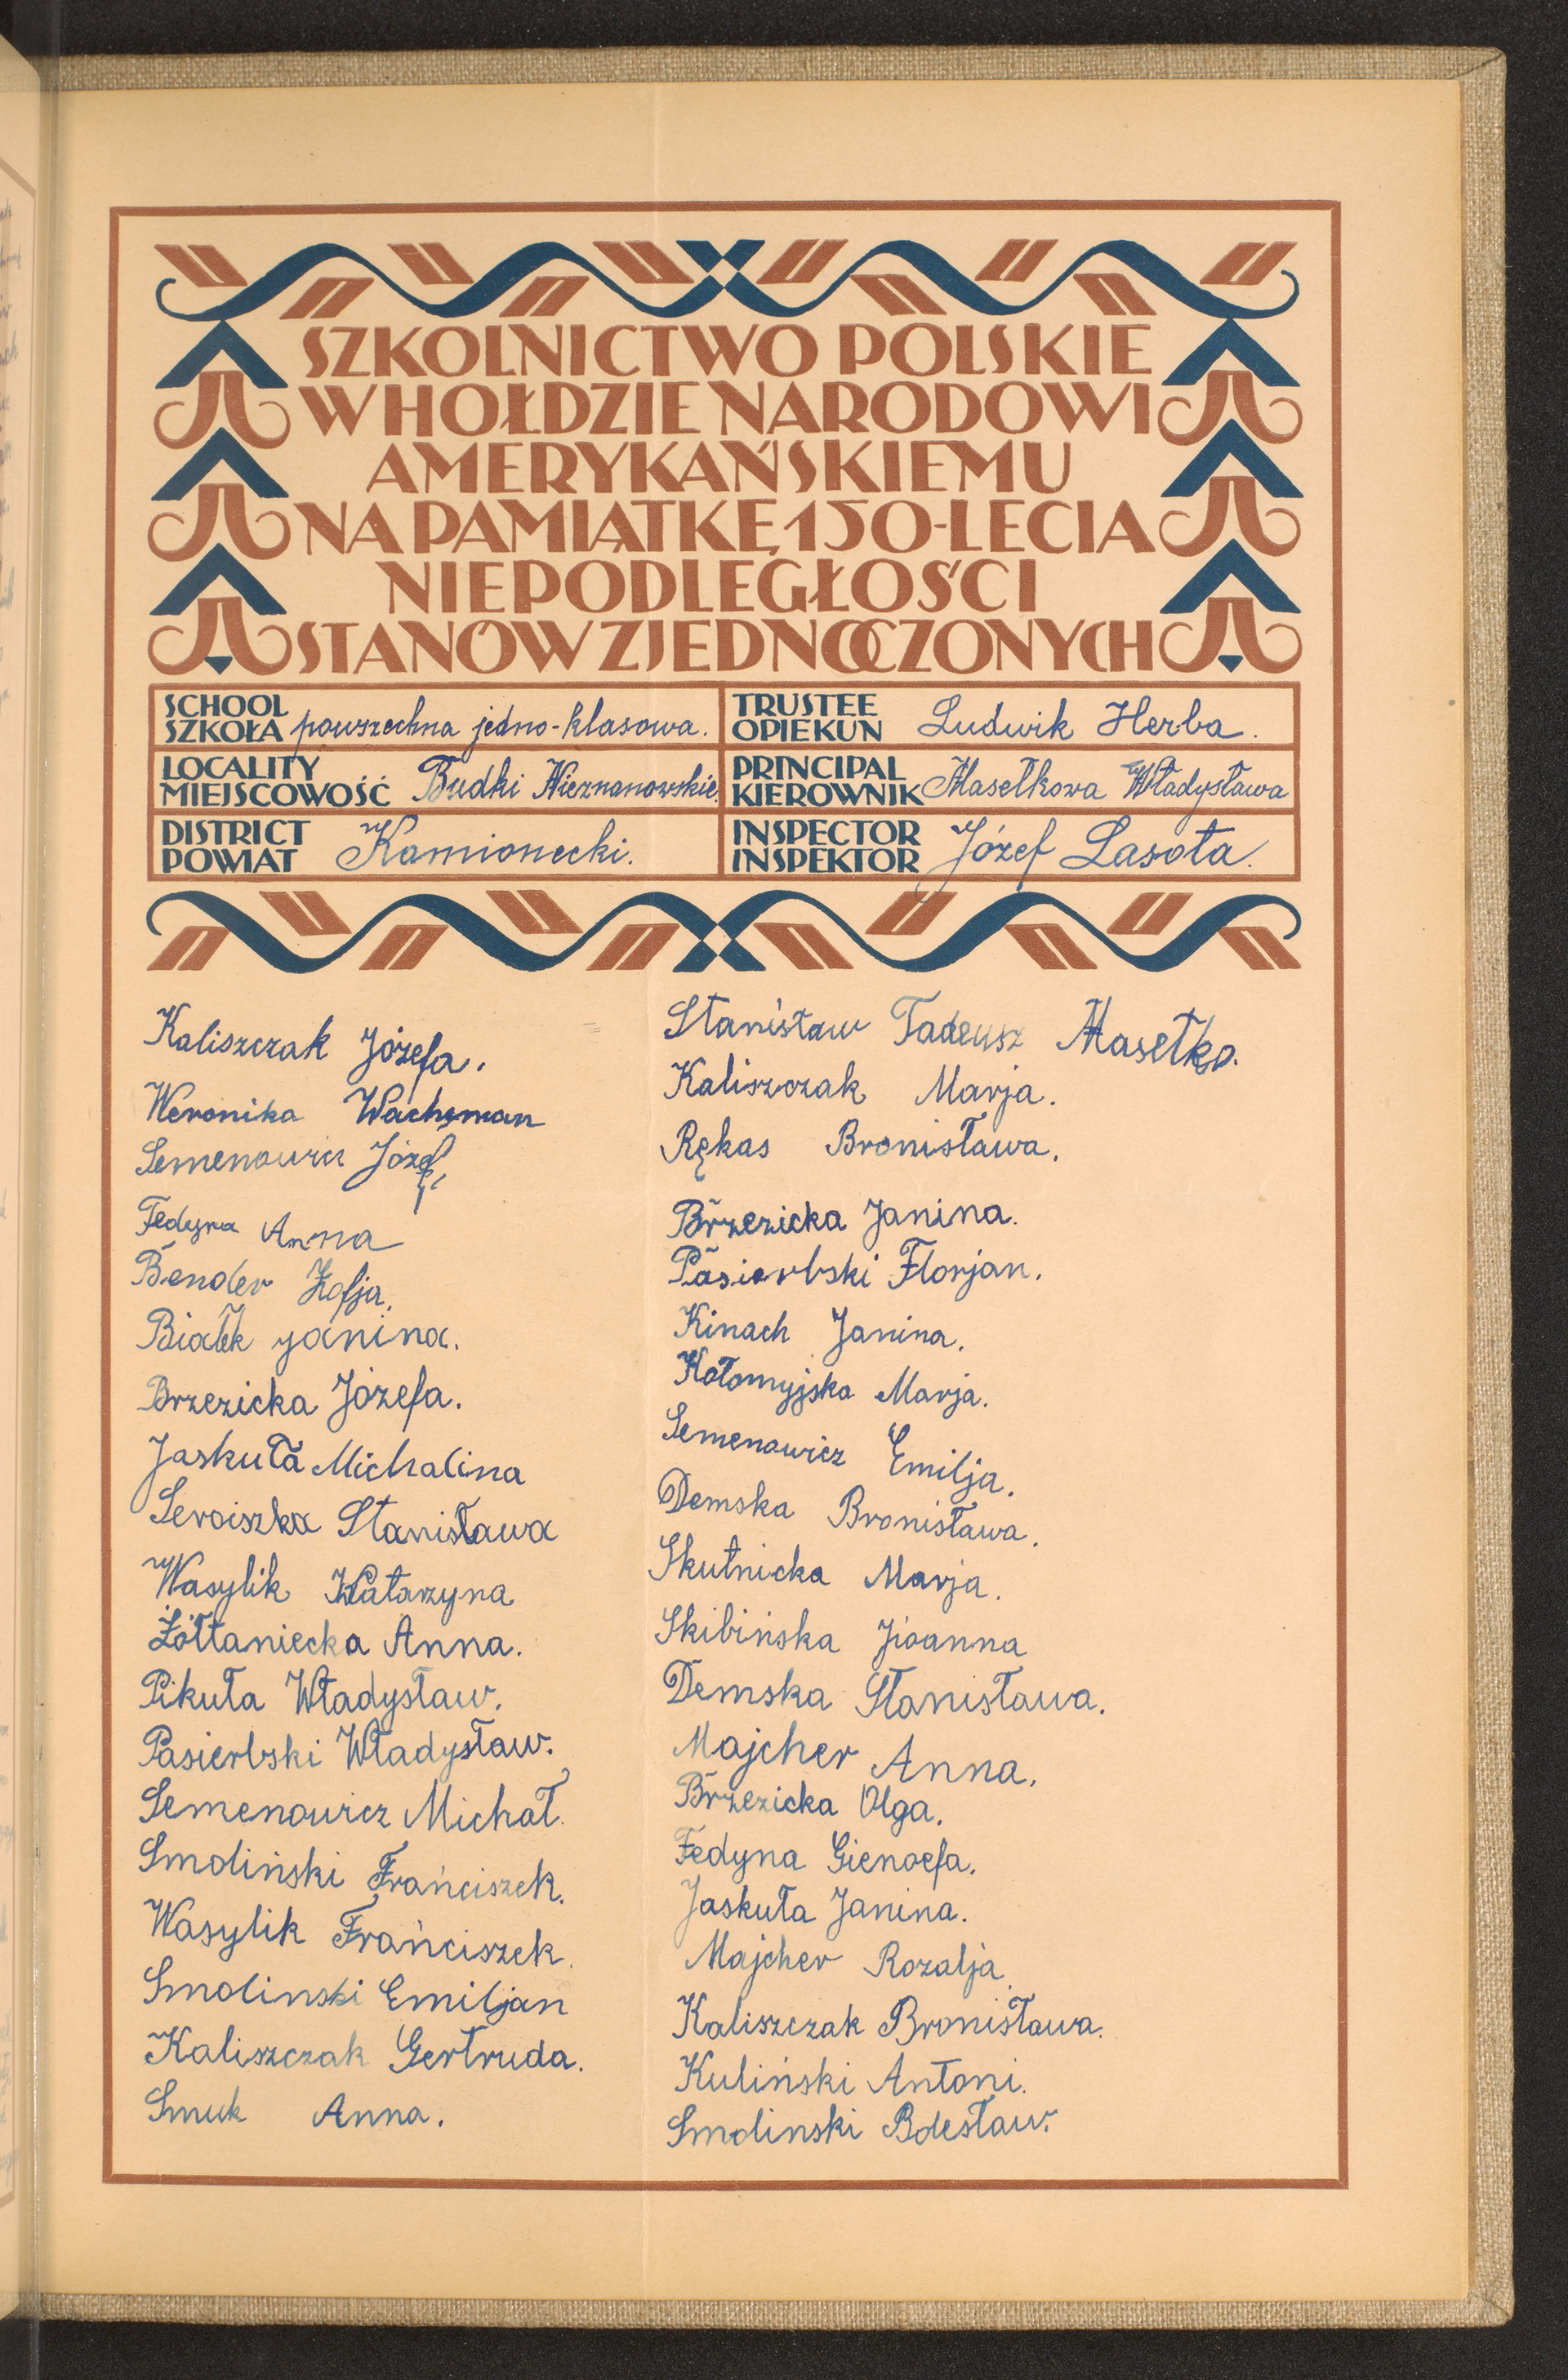 SZKOLNICTWO POLSKIE
W HOŁDZIE NARODOWI
AMERYKAŃSKIEMU
NA PAMIĄTKĘ 150-LECIA
NIEPODLEGŁOŚCI
STANÓW ZJEDNOCZONYCH
SCHOOL
SZKOŁA powszechna jedno-klasowa.
TRUSTEE
OPIEKUN Ludwik Herba.
LOCALITY
MIEJSCOWOŚĆ Budki Nieznanowskie.
PRINCIPAL
KIEROWNIK Masełkowa Władysława
DISTRICT
POWIAT Kamionecki.
INSPECTOR
INSPEKTOR Józef Lasota.
Kaliszczak Józefa.
Weronika Wachsman
Semenowicz Józef
Fedyna Anna
Bender Zofja.
Białek Janina.
Brzezicka Józefa.
Jaskuła Michalina
Seroiszka Stanisława
Wasylik Katarzyna
Żółtaniecka Anna.
Pikuła Władysław.
Pasierbski Władysław.
Semenowicz Michał.
Smoliński Franciszek.
Wasylik Franciszek.
Smolinski Emiljan
Kaliszczak Gertruda.
Smuk Anna.
Stanisław Tadeusz Masełko.
Kaliszczak Marja.
Rękas Bronisława.
Brzezicka Janina.
Pasierbski Florjan.
Kinach Janina.
Kołomyjska Marja.
Semenowicz Emilja.
Demska Bronisława.
Skulnicka Marja.
Skibińska Joanna
Demska Stanisława.
Majcher Anna.
Brzezicka Olga.
Fedyna Gienoefa.
Jaskuła Janina.
Majcher Rozalja.
Kaliszczak Bronisława.
Kuliński Antoni.
Smolinski Bolesław.